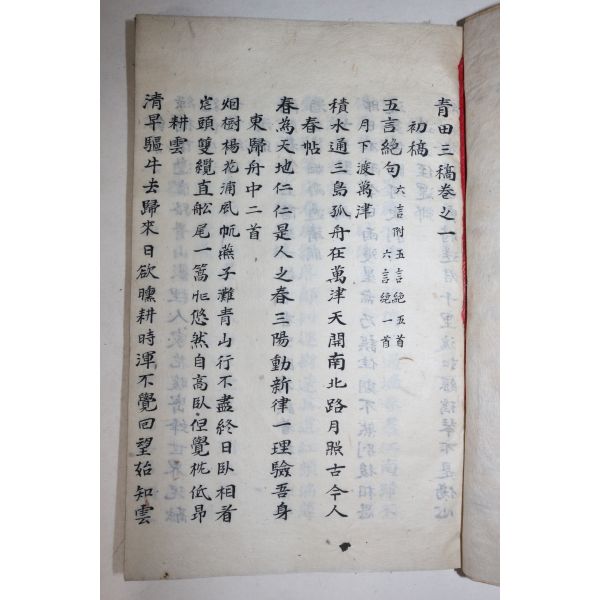 青田三稿卷之一
初稿
五言絶句 六言附五言絶五首
六言絶一首
月下渡萬津
積水通三島孤舟在萬津天開南北路月照古今人
春帖
春為天地仁仁是人之春三陽動新律一理驗吾身
東歸舟中二首
烟樹楊花浦風帆燕子灘青山行不盡終日卧相看
岩頭雙纜直舩尾一篙 悠然自高卧但覺枕低昂
耕雲
清早驅牛去歸來日欲曛耕時渾不覺回望始知雲